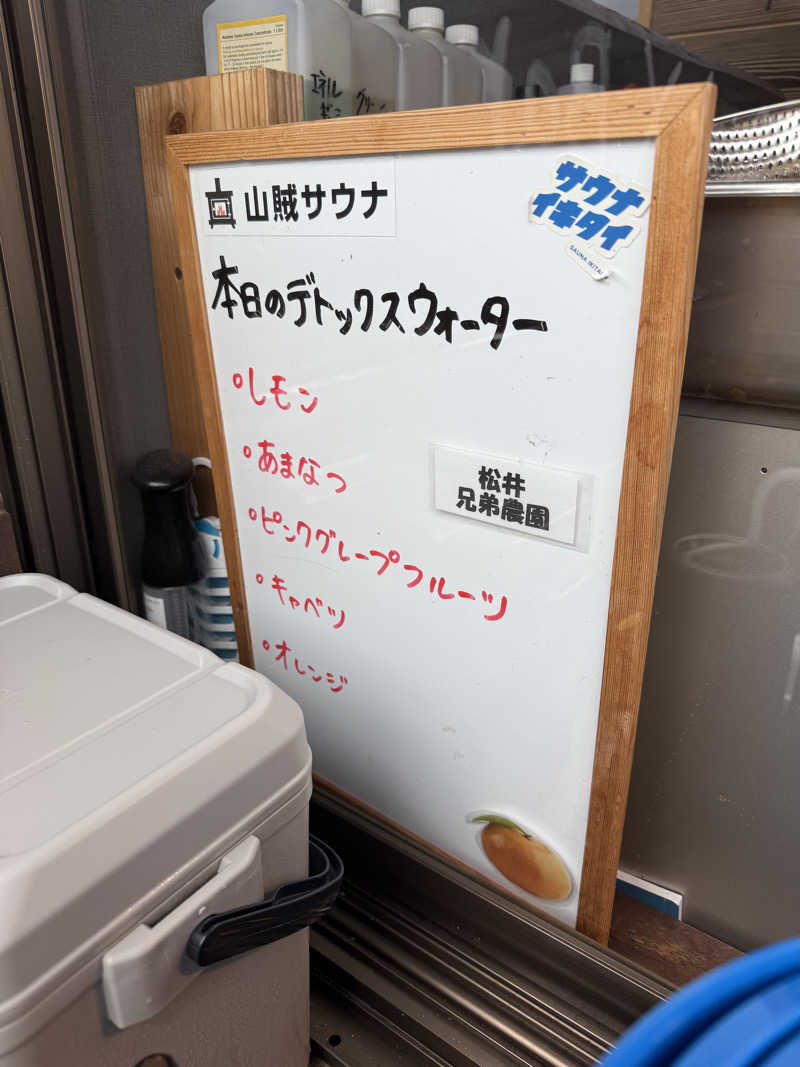 エネル
ギー
グリー
山賊サウナ
サウナ
イキタイ
SAUNA IKITAI
本日のデトックスウォーター
・レモン
・あまなつ
・ピンクグレープフルーツ
・キャベツ
・オレンジ
松井
兄弟農園